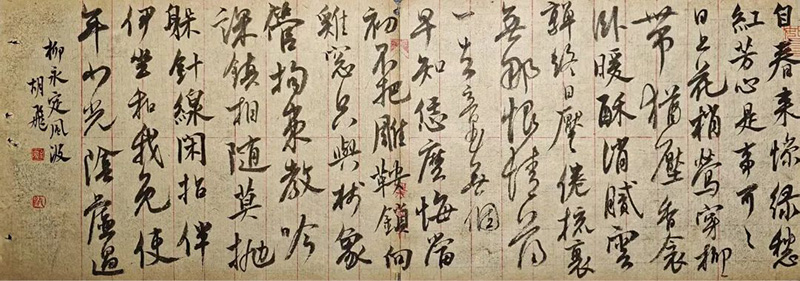 自春来惨緑愁
紅芳心是事可々
日上花梢鶯穿柳
帶猶壓香衾
卧暖酥消膩雲
嚲終日厭倦梳裹
無那恨情薄
一去音書無個
早知恁麽悔當
初不把雕鞍鎖向
雞窓只與象
管拘束教吟
課鎮相随莫抛
躲針線閑拈伴
伊坐和我免使
年少光陰虛過
柳永定風波
胡飛